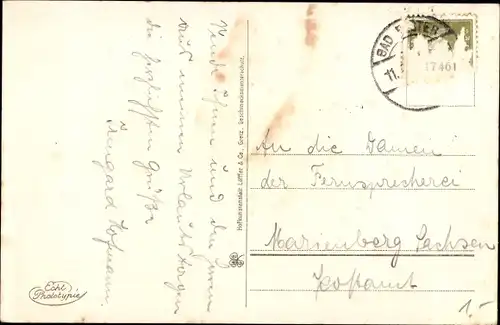 Sende Ihnen und den Herren
aus meinen Urlaubstagen
die herzlichsten Grüße
Irmgard Hofmann
Echt
Phototypie
Hofkunstanstalt Löffler & Co., Greiz. Geschmacksmusterschutz.
BAD ELSTER
11.
17461
An die Damen
der Fernsprecherei
Marienberg Sachsen
Postamt
1.-